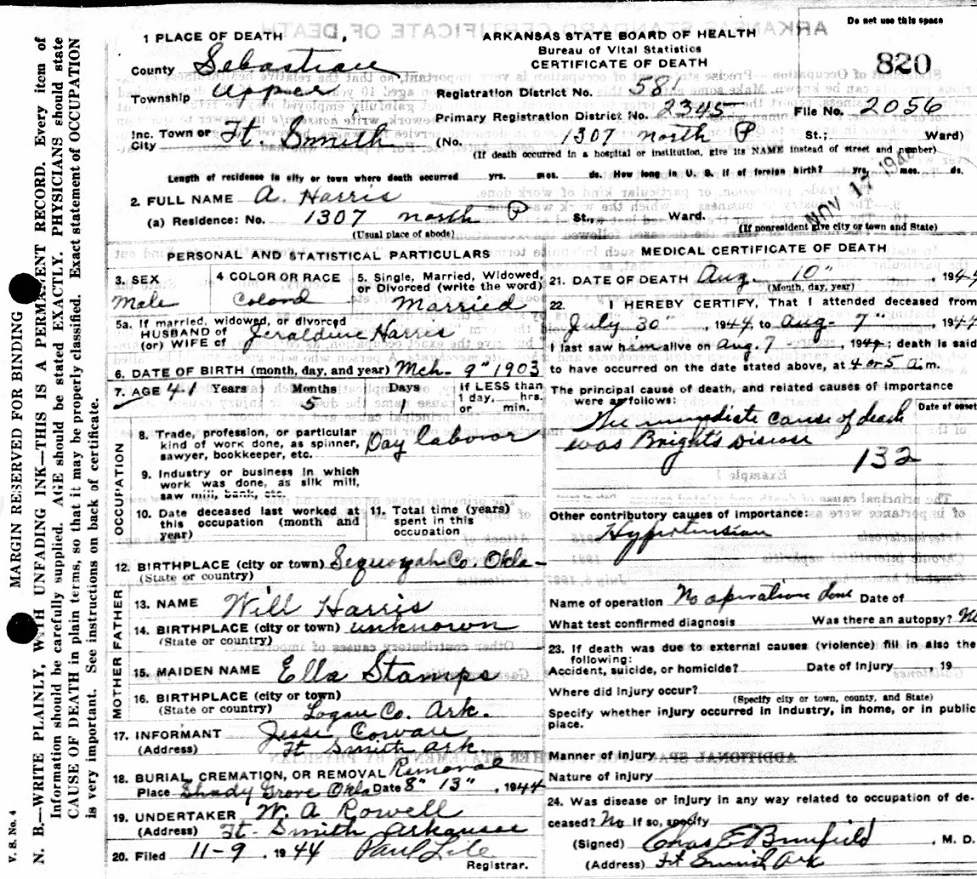 Do not use this space
820
ARKANSAS STATE BOARD OF HEALTH
Bureau of Vital Statistics
CERTIFICATE OF DEATH
1 PLACE OF DEATH
County Sebastian
Township Upper
Registration District No. 58
Primary Registration District No. 2345 File No. 2056
Inc. Town or City Ft. Smith (No. 1307 north P St.; Ward)
(If death occurred in a hospital or institution, give its NAME instead of street and number)
Length of residence in city or town where death occurred yrs. mos. ds. How long in U. S. if of foreign birth? yrs. mos. ds.
NOV 17
2. FULL NAME A. Harris
(a) Residence: No. 1307 north P St., Ward.
(Usual place of abode) (If nonresident give city or town and State)
PERSONAL AND STATISTICAL PARTICULARS
3. SEX Male
4 COLOR OR RACE Colord
5. Single, Married, Widowed, or Divorced (write the word) Married
5a. If married, widowed, or divorced
HUSBAND OF
(or) WIFE of Jeraldine Harris
6. DATE OF BIRTH (month, day, and year) Mch. 9" 1903
7. AGE 41 Years 5 Months 1 Days If LESS than 1 day, hrs. or min.
OCCUPATION
8. Trade, profession, or particular kind of work done, as spinner, sawyer, bookkeeper, etc. Day labovor
9. Industry or business in which work was done, as silk mill, saw mill, bank, etc.
10. Date deceased last worked at this occupation (month and year)
11. Total time (years) spent in this occupation
12. BIRTHPLACE (city or town) Sequoyah Co. Okla-
(State or country)
FATHER
13. NAME Will Harris
14. BIRTHPLACE (city or town) unknown
(State or country)
MOTHER
15. MAIDEN NAME Ella Stamps
16. BIRTHPLACE (city or town)
(State or country) Logan Co. Ark.
17. INFORMANT Jessie Cowan
(Address) Ft Smith Ark.
18. BURIAL, CREMATION, OR REMOVAL Removal
Place Shady Grove Okla Date 8" 13", 1944
19. UNDERTAKER W. A. Rowell
(Address) Ft- Smith Arkansas
20. Filed 11-9, 1944 Paul
Registrar.
MEDICAL CERTIFICATE OF DEATH
21. DATE OF DEATH Aug. 10", 1944
(Month, day, year)
22. I HEREBY CERTIFY, That I attended deceased from
July 30", 1944, to Aug- 7", 1944
I last saw him alive on Aug. 7, 194; death is said
to have occurred on the date stated above, at 4 or 5 a.m.
The principal cause of death, and related causes of importance were as follows:
Date of onset
The immediate cause of death
was Bright's Disease
132
Other contributory causes of importance:
Hypertension
Name of operation No operation done Date of
What test confirmed diagnosis Was there an autopsy? No
23. If death was due to external causes (violence) fill in also the following:
Accident, suicide, or homicide? Date of Injury, 19
Where did injury occur?
(Specify city or town, county, and State)
Specify whether injury occurred in industry, in home, or in public place.
Manner of injury
Nature of injury
24. Was disease or injury in any way related to occupation of deceased? No If so, specify
(Signed) Chas E , M. D.
(Address) Ft Smith Ark
MARGIN RESERVED FOR BINDING
V. S. No. 4
N. B.—WRITE PLAINLY, WITH UNFADING INK—THIS IS A PERMANENT RECORD. Every item of
Information should be carefully supplied. AGE should be stated EXACTLY. PHYSICIANS should state
CAUSE OF DEATH in plain terms, so that it may be properly classified. Exact statement of OCCUPATION
is very important. See instructions on back of certificate.